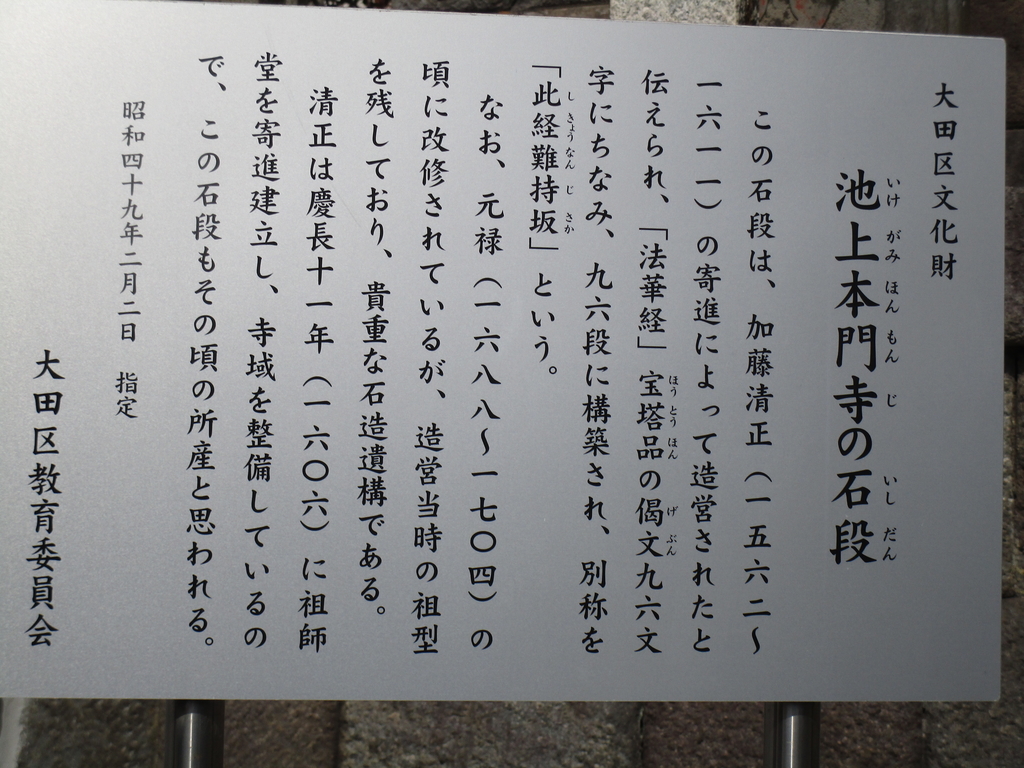 大田区文化財
池上本門寺の石段
いけ がみ ほん もん じ いし だん
この石段は、加藤清正（一五六二〜
一六一一）の寄進によって造営されたと
伝えられ、「法華経」宝塔品の偈文九六文
ほう とう ほん げ ぶん
字にちなみ、九六段に構築され、別称を
「此経難持坂」という。
し きょう なん じ さか
なお、元禄（一六八八〜一七〇四）の
頃に改修されているが、造営当時の祖型
を残しており、貴重な石造遺構である。
清正は慶長十一年（一六〇六）に祖師
堂を寄進建立し、寺域を整備しているの
で、この石段もその頃の所産と思われる。
昭和四十九年二月二日 指定
大田区教育委員会